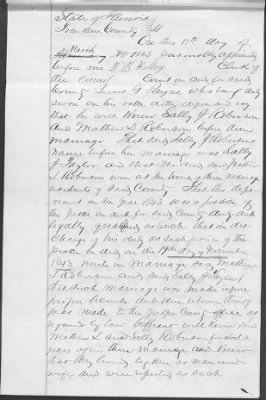 State of Missouri
Franklin County
On the 11th day of
March 1883 Personally appeared
before me W. B. Kelley Clerk of
the circuit Court in and for said
County Lewis G. Payne who being duly
sworn on his oath doth depose and say
that he well knew Sally J Robinson
and Mathew L Robinson before their
marriage That said Sally J Robinsons
name before her marriage was Sally
J and that she and said Mathew
L Robinson were at the time of their marriage
residents of said County That this depo-
nent in the year 1843 was a justice of
the peace in and for said County duly and
legally qualified as such that in dis-
charge of his duty as such justice of the
peace he did on the 19th day of November
1843 join in marriage said Mathew
L Robinson and said Sally J
that such marriage was made upon
proper license and due return thereof
was made to the proper County officer as
required by law Affiant well knew said
Mathew L and Sally Robinson for about
years after their marriage and knows
that they lived together as man and
wife and were reputed as such